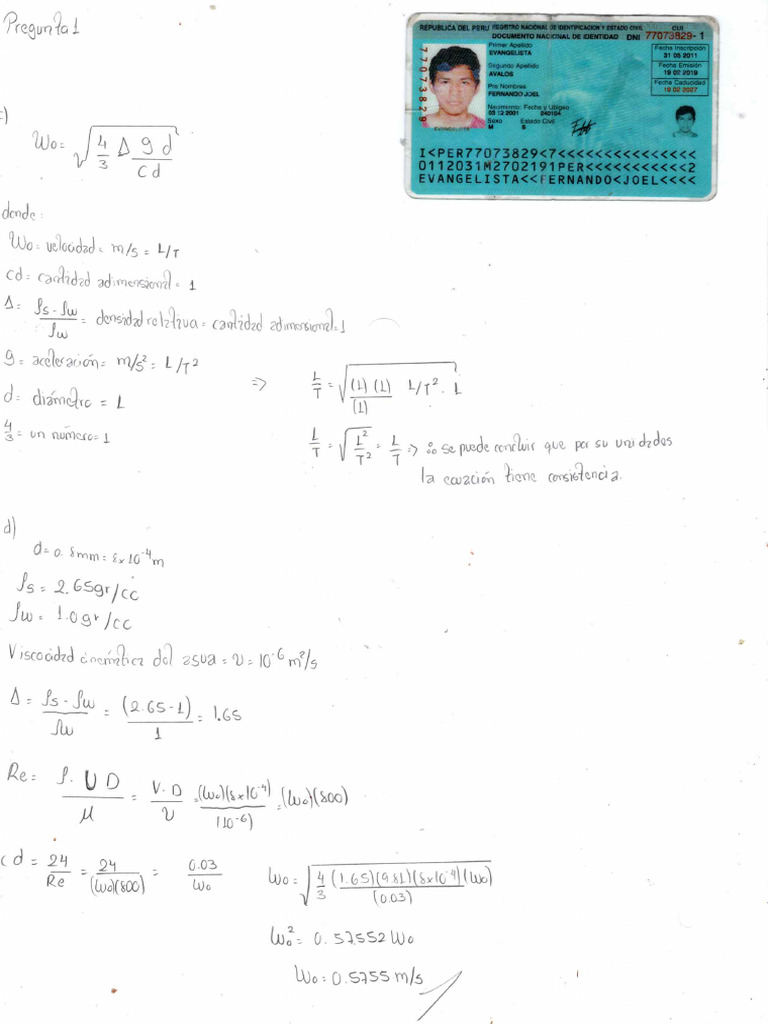 Pregunta 1
REPUBLICA DEL PERU REGISTRO NACIONAL DE IDENTIFICACION Y ESTADO CIVIL CUI
DOCUMENTO NACIONAL DE IDENTIDAD DNI 77073829-1
77073829
Primer Apellido
EVANGELISTA
Segundo Apellido
AVALOS
Pre Nombres
FERNANDO JOEL
Nacimiento: Fecha y Ubigeo
03 12 2001 240104
Sexo Estado Civil
M S
Fecha Inscripción
31 05 2011
Fecha Emisión
19 02 2019
Fecha Caducidad
19 02 2027
EVANGELISTA
I<PER77073829<7<<<<<<<<<<<<<<<
0112031M2702191PER<<<<<<<<<<<2
EVANGELISTA<<FERNANDO<JOEL<<<<
c)
Wo = √(4/3 Δ g d / cd)
donde:
Wo = velocidad = m/s = L/T
cd = cantidad adimensional = 1
Δ = ρs - ρw / ρw = densidad relativa = cantidad adimensional = 1
g = aceleración = m/s² = L/T²
d = diámetro = L
4/3 = un número = 1
=> L/T = √((1)(1) L/T² · L / (1))
L/T = √(L²/T²) = L/T => ∴ se puede concluir que por su unidades
la ecuación tiene consistencia.
d)
d = 0.8mm = 8x10⁻⁴m
ρs = 2.65gr/cc
ρw = 1.0gr/cc
Viscocidad cinemática del agua = ν = 10⁻⁶ m²/s
Δ = ρs - ρw / ρw = (2.65-1) / 1 = 1.65
Re = ρ. U D / μ = V. D / ν = (Wo)(8x10⁻⁴) / (10⁻⁶) = (Wo)(800)
cd = 24/Re = 24/(Wo)(800) = 0.03/Wo
Wo = √(4/3 (1.65)(9.81)(8x10⁻⁴)(Wo) / (0.03))
Wo² = 0.57552 Wo
Wo = 0.5755 m/s